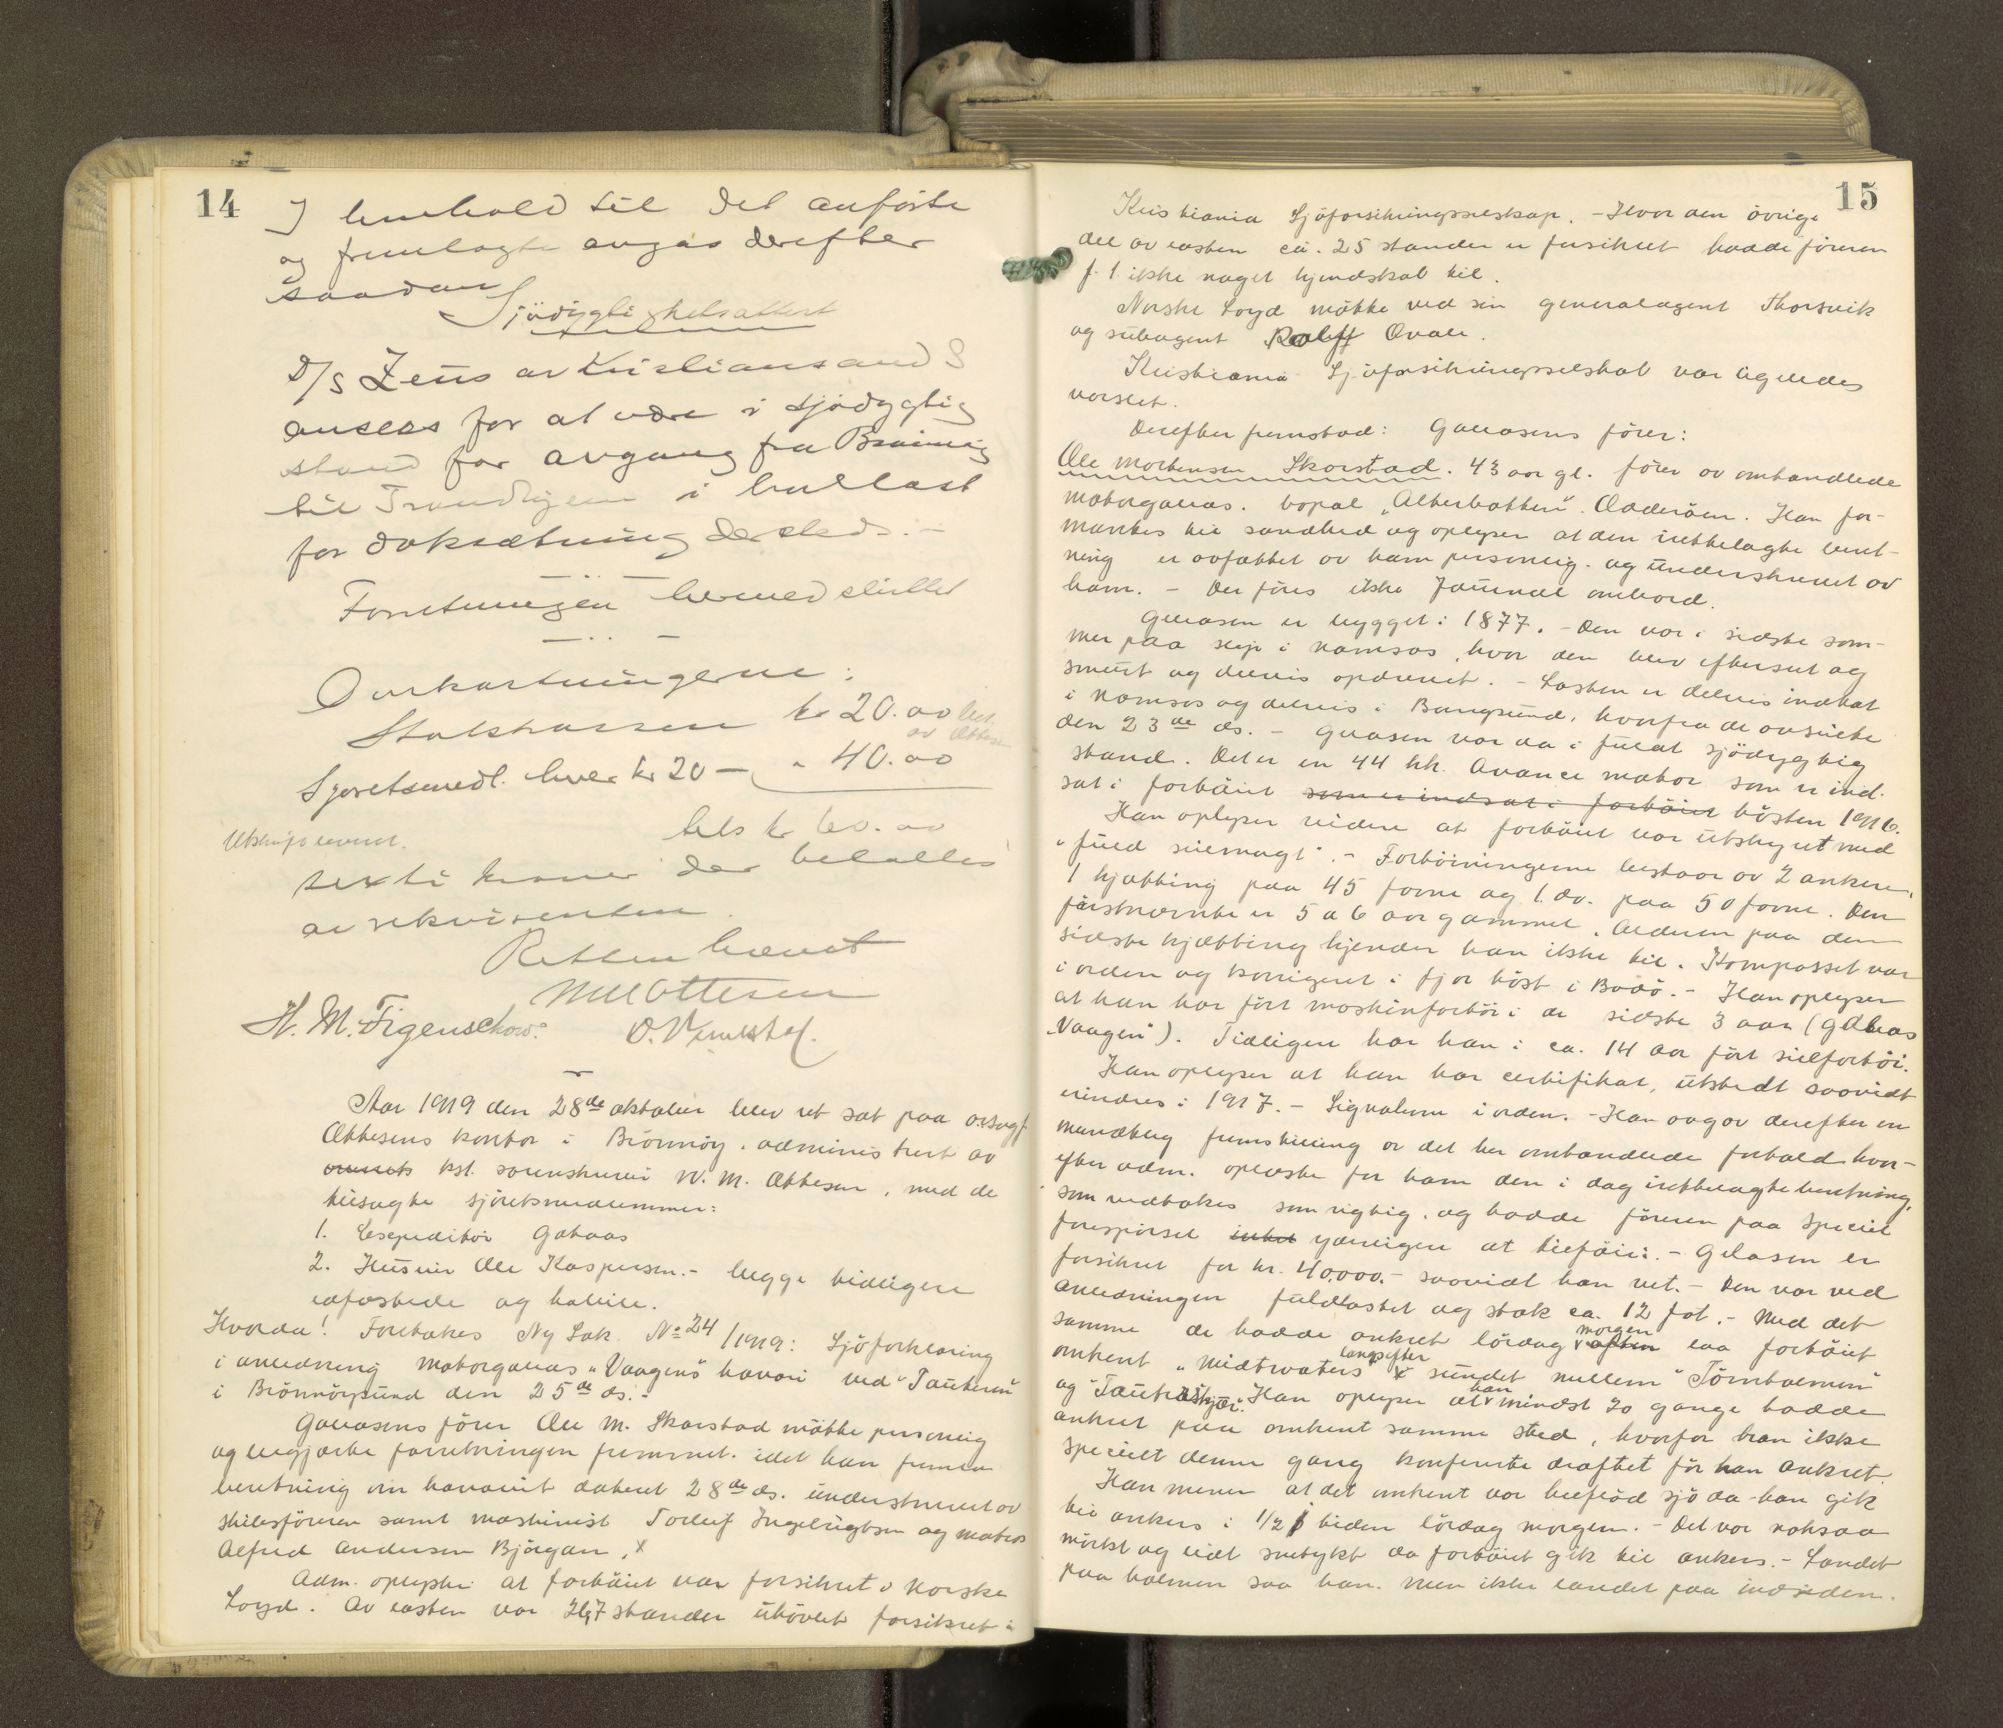 14
I henhold til det anförte
og fremlagte avgas derefter
saadan
Sjödygtighetsattest
D/S Zeus av Kristiansand S
ansees for at være i sjödygtig
stand for avgang fra Brönnöy
til Trondhjem i ballast
for doksætning dersteds. —
Forretningen hermed sluttet
Omkostningerne:
Statskassen kr 20.00 bet.
av Ottesen
Sjöretsmedl. hver kr 20 — " 40.00
tils kr 60.00
Utskrift levert.
sexti kroner der betaltes
av rekvirenten.
Retten hævet
W M Ottesen
H. M. Figenschow.
Aar 1919 den 28de oktober blev ret sat paa o.r.sagf.
Ottesens kontor i Brönnöy, administrert av
kst. sorenskriver W. M. Ottesen, med de
tilsagte sjöretsmedlemmer:
1. Expeditör Gabaas
2. Huseier Ole Kaspersen. – begge tidligere
edfæstede og habile.
Hvorda! Foretokes Ny Sak No 24/1919: Sjöforklaring
i anledning motorgaleas "Vaagens" havari ved "Tauteren"
i Brönnöysund den 25de ds. –
Galeasens förer Ole M. Skarstad mötte personlig
og begjærte forretningen fremmet. idet han fremla
beretning om havariet datert 28de ds. underskrevet av
skibsföreren samt maskinist Torleif Ingebrigtsen og matros
Alfred Andersen Björgan. x
Adm. oplyste at fartöiet var forsikret i Norske
Loyd. Av lasten var 247 stander utövlet forsikret i
15
Kristiania Sjöforsikringsselskap. – Hvor den övrige
del av lasten ca. 25 stander er forsikret hadde föreren
f. t. ikke noget kjendskab til.
Norske Loyd mötte ved sin generalagent Thorsvik
og subagent Rolff Qvale.
Kristiania Sjöforsikringsselskab var ligeledes
varslet.
Derefter fremstod: Galeasens förer:
Ole Mortensen Skarstad. 43 aar gl. förer av omhandlede
motorgaleas. bopæl "Alterbotten". Dönderöen. Han for-
manes til sandhed og oplyser at den irettelagte beret-
ning er avfattet av ham personlig. og underskrevet av
ham. – Der föres ikke Journal ombord.
Galeasen er bygget i 1877. – Den var i sidste som-
mer paa slip i Namsos, hvor den blev efterset og
smurt og delvis opdrevet. – Lasten er delvis indtat
i Namsos og delvis i Bangsund, hvorfra de avseilte
den 23de ds. – Galeasen var da i fuldt sjödygtig
stand. Det er en 44 hk. Avance motor som er ind-
sat i fartöiet som er indsat i fartöiet hösten 1916.
Han oplyser videre at fartöiet var utstyret med
"fuld seilmagt". – Fortöiningerne bestaar av 2 ankere,
1 kjætting paa 45 favne og 1. do. paa 50 favne. Den
förstnævnte er 5 a 6 aar gammel. Alderen paa den
sidste kjætting kjender han ikke til. Kompasset var
i orden og korrigeret i fjor höst i Bodö. – Han oplyser
at han har fört maskinfartöi i de sidste 3 aar (galeas
"Vaagen"). Tidligere har han i ca. 14 aar fört seilfartöi.
Han oplyser at han har certifikat, utstedt saavidt
erindres i 1917. – Signalerne i orden. – Han avgav derefter en
mundtlig fremstilling av det her omhandlede forhold hvor-
efter adm. oplæste for ham den i dag irettelagte beretning,
som vedtokes som rigtig. og hadde föreren paa speciel
forespörsel intet yderligere at tilföie. – Galeasen er
forsikret for kr. 40,000. – saavidt han vet. – Den var ved
anledningen fuldlastet og stak ca. 12 fot. – Med det
samme de hadde ankret lördag morgen aften laa fartöiet
omtrent "midtvaters" langsefter sundet mellem "Törnholmen"
og "Tautraskjær". Han oplyser at han mindst 20 gange hadde
ankret paa omtrent samme sted, hvorfor han ikke
specielt denne gang konfererte draftet för han ankret.
Han mener at det omtrent var halvflöd sjö da han gik
til ankers i 1/2 1 tiden lördag morgen. – Det var noksaa
mörkt og litt snetykt da fartöiet gik til ankers. – Landet
paa holmen saa han. men ikke landet paa indsiden.